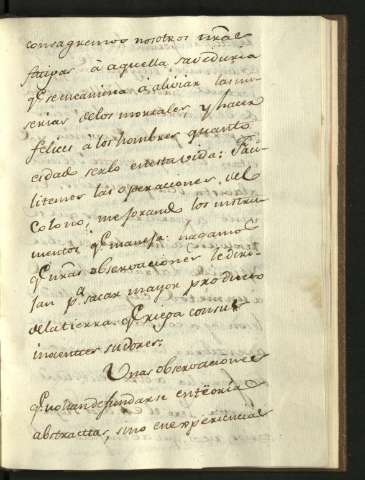 consagremos nosotros nrãs
fatigas â aquella saveduria
q̃ se encamina â aliviar las mi-
serias delos mortales, y hacer
felices â los hombres quanto
cidad serlo en esta vida: Faci-
litemos las operaciones del
Colono, mejorando los instru-
mentos q̃ maneja: hagamos
q̃ nras observaciones le diri-
jan pª sacar mayor producto
dela tierra q̃ riega con sus
inocentes sudores.
Unas observaciones
q̃ no han de fundarse en teória
abstractas, sino en experiencias